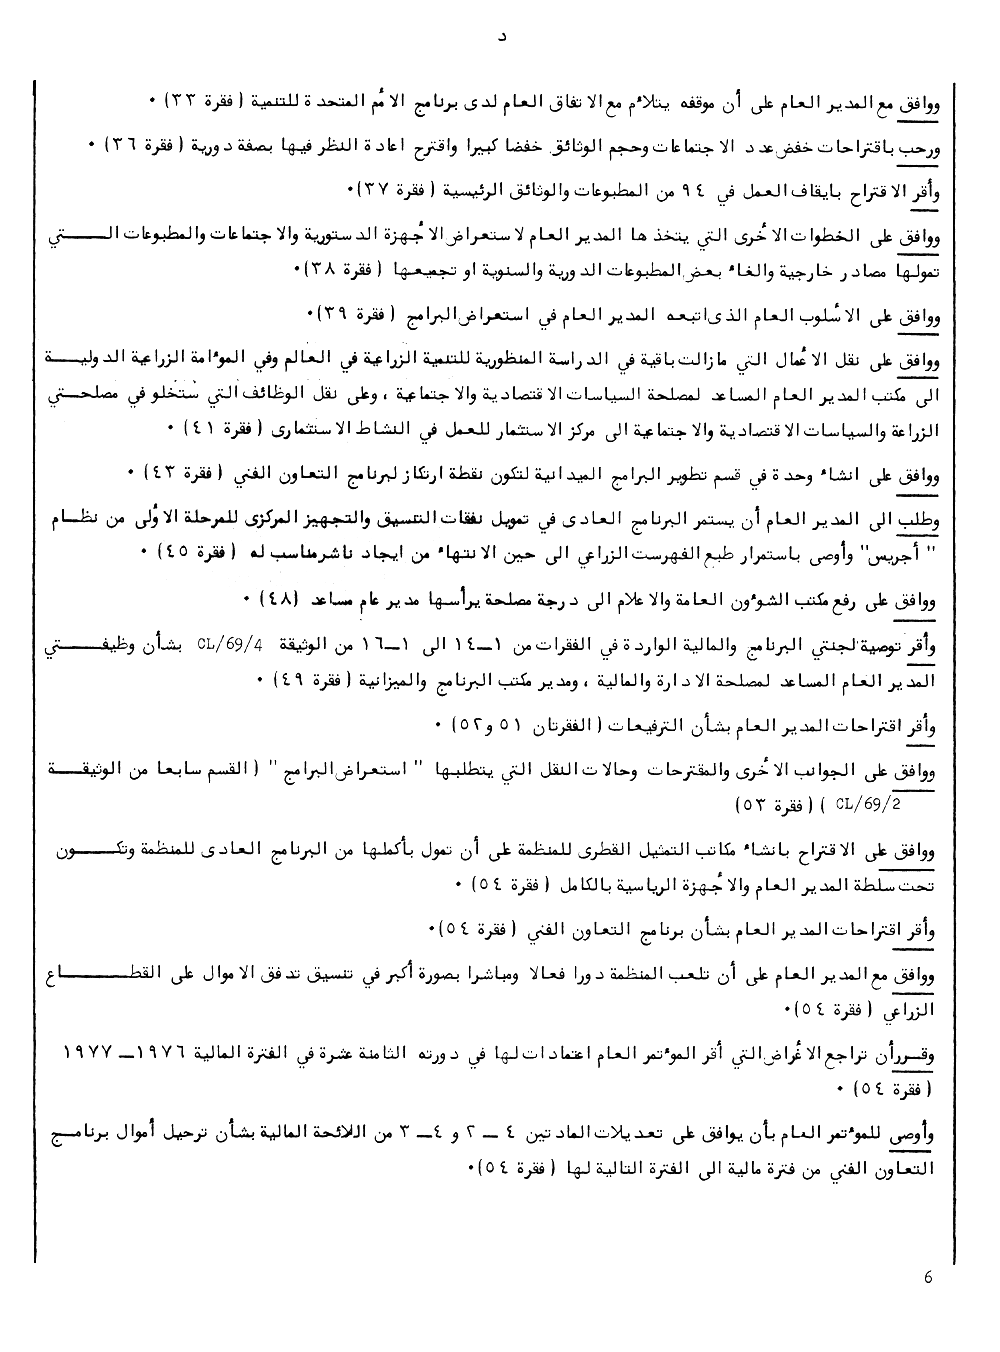 د
ووافق مع المدير العام على أن موقفه يتلاءم مع الاتفاق العام لدى برنامج الأمم المتحدة للتنمية ( فقرة ٣٣) .
ورحب باقتراحات خفض عدد الاجتماعات وحجم الوثائق خفضا كبيرا واقترح اعادة النظر فيها بصفة دورية ( فقرة ٣٦) .
وأقر الاقتراح بايقاف العمل في ٩٤ من المطبوعات والوثائق الرئيسية ( فقرة ٣٧).
ووافق على الخطوات الأخرى التي يتخذها المدير العام لاستعراض الأجهزة الدستورية والاجتماعات والمطبوعات الـــــتي
تمولها مصادر خارجية والغاء بعض المطبوعات الدورية والسنوية او تجميعها ( فقرة ٣٨).
ووافق على الأسلوب العام الذى اتبعه المدير العام في استعراض البرامج ( فقرة ٣٩).
ووافق على نقل الأعمال التي مازالت باقية في الدراسة المنظورية للتنمية الزراعية في العالم وفي الموءامة الزراعية الدوليـــة
الى مكتب المدير العام المساعد لمصلحة السياسات الاقتصادية والاجتماعية ، وعلى نقل الوظائف التي ستخلو في مصلحـــتي
الزراعة والسياسات الاقتصادية والاجتماعية الى مركز الاستثمار للعمل في النشاط الاستثمارى ( فقرة ٤١) .
ووافق على انشاء وحدة في قسم تطوير البرامج الميدانية لتكون نقطة ارتكاز لبرنامج التعاون الفني ( فقرة ٤٣) .
وطلب الى المدير العام أن يستمر البرنامج العادى في تمويل نفقات التنسيق والتجهيز المركزى للمرحلة الأولى من نظــام
" أجريس" وأوصى باستمرار طبع الفهرست الزراعي الى حين الانتهاء من ايجاد ناشر مناسب له ( فقرة ٤٥) .
ووافق على رفع مكتب الشوءون العامة والاعلام الى درجة مصلحة يرأسها مدير عام مساعد (٤٨) .
وأقر توصية لجنتي البرنامج والمالية الواردة في الفقرات من ١ــ١٤ الى ١ــ١٦ من الوثيقة CL/69/4 بشأن وظيفـــــتي
المدير العام المساعد لمصلحة الادارة والمالية ، ومدير مكتب البرنامج والميزانية ( فقرة ٤٩) .
وأقر اقتراحات المدير العام بشأن الترفيعات ( الفقرتان ٥١ و٥٢) .
ووافق على الجوانب الأخرى والمقترحات وحالات النقل التي يتطلبها " استعراض البرامج " ( القسم سابعا من الوثيقـــة
CL/69/2 ) ( فقرة ٥٣)
ووافق على الاقتراح بانشاء مكاتب التمثيل القطرى للمنظمة على أن تمول بأكملها من البرنامج العادى للمنظمة وتكـــــون
تحت سلطة المدير العام والأجهزة الرياسية بالكامل ( فقرة ٥٤) .
وأقر اقتراحات المدير العام بشأن برنامج التعاون الفني ( فقرة ٥٤).
ووافق مع المدير العام على أن تلعب المنظمة دورا فعالا ومباشرا بصورة أكبر في تنسيق تدفق الاموال على القطــــــاع
الزراعي ( فقرة ٥٤).
وقـــرر أن تراجع الأغراض التي أقر الموءتمر العام اعتمادات لها في دورته الثامنة عشرة في الفترة المالية ١٩٧٦ــ ١٩٧٧
( فقرة ٥٤) .
وأوصى للموءتمر العام بأن يوافق على تعديلات المادتين ٤ ــ ٢ و ٤ــ ٣ من اللائحة المالية بشأن ترحيل أموال برنامــج
التعاون الفني من فترة مالية الى الفترة التالية لها ( فقرة ٥٤).
6